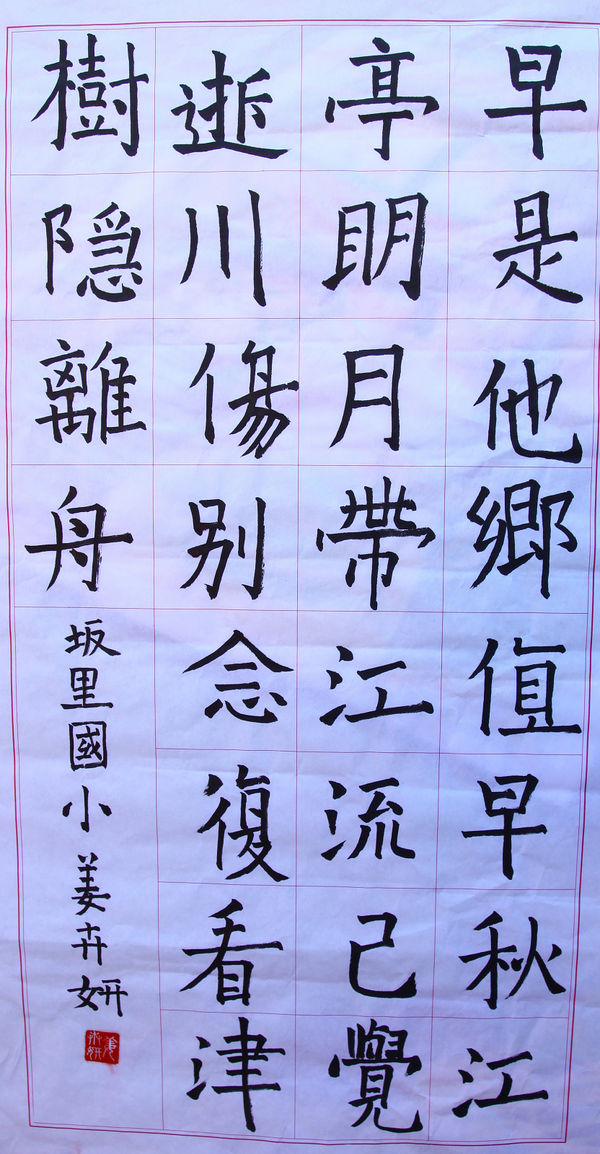 早是他鄉值早秋江
亭眀月帶江流己覺
逝川傷别念復看津
樹隐離舟
坂里國小姜卉妍
姜卉妍